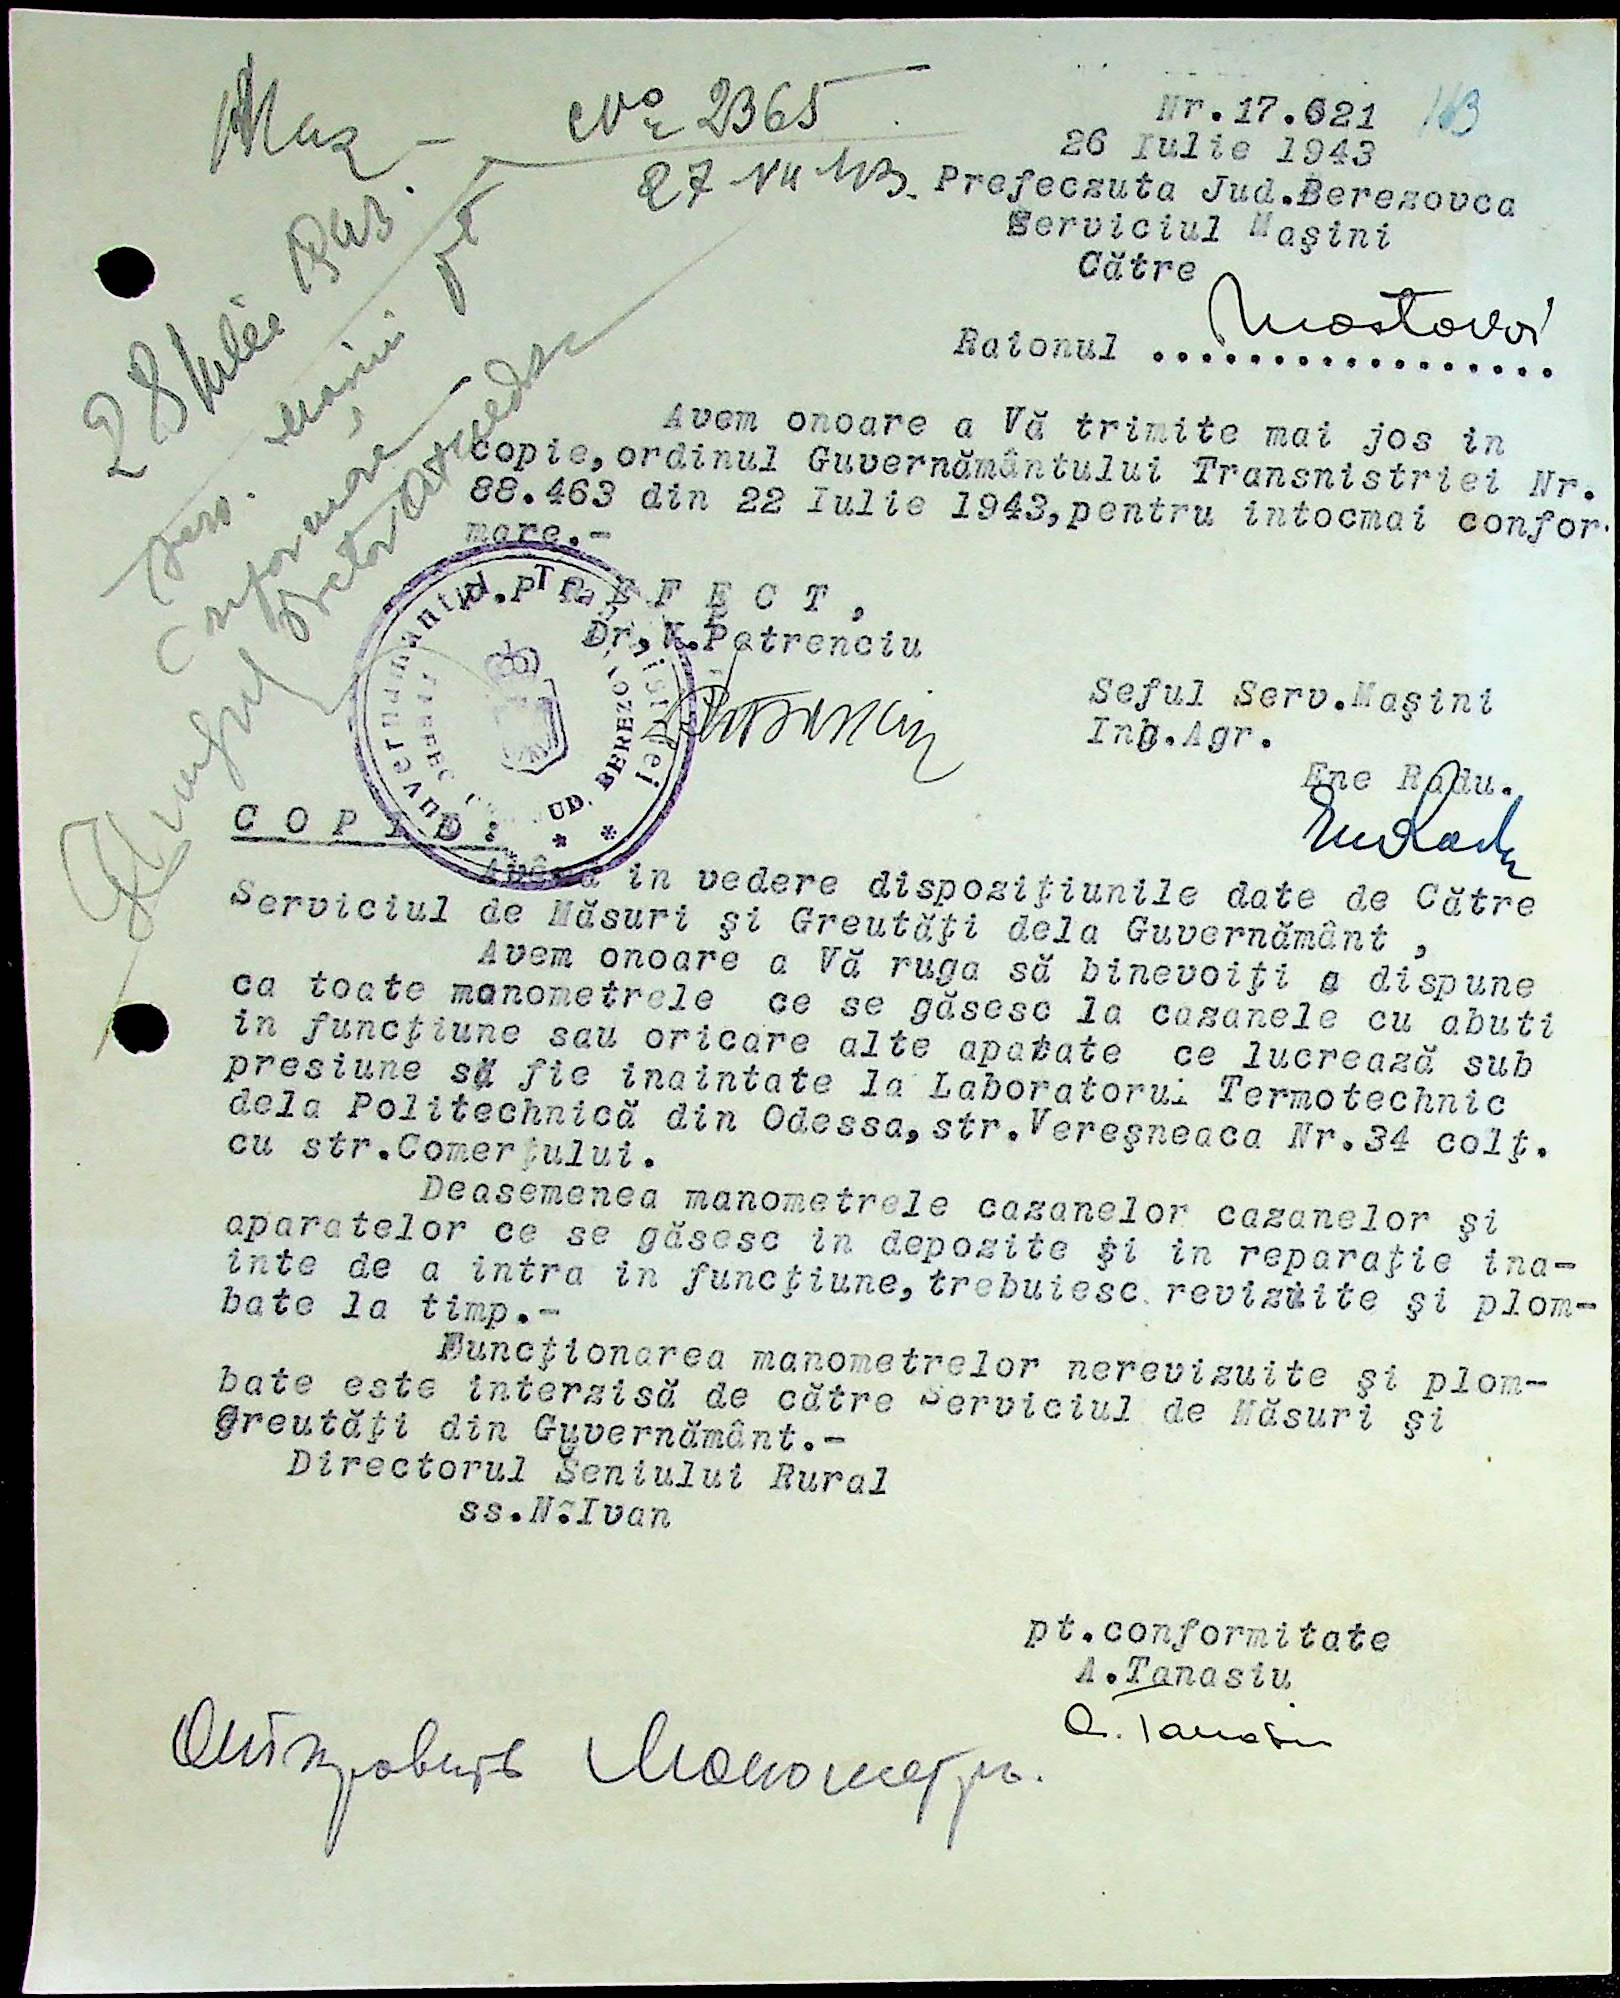 No 2365
27 VII 943.
Nr.17.621
26 Iulie 1943
Prefeczuta Jud.Berezovca
Serviciul Maşini
Către
Raionul ................. Mostovoi
28 Iulie 943.
Serv. maşini pt
conformare
Avem onoare a Vă trimite mai jos in
copie,ordinul Guvernământului Transnistriei Nr.
88.463 din 22 Iulie 1943,pentru intocmai confor-
mare.-
p.P R E F E C T ,
Dr.N.Petrenciu
Seful Serv.Maşini
Ing.Agr.
Ene Radu.
Ene Radu
UD. BEREZO
C O P I E :
Avênd in vedere dispoziţiunile date de Către
Serviciul de Măsuri şi Greutăţi dela Guvernământ ,
Avem onoare a Vă ruga să binevoiţi a dispune
ca toate manometrele ce se găsesc la cazanele cu abuti
in funcţiune sau oricare alte apatate ce lucrează sub
presiune să fie inaintate la Laboratorul Termotechnic
dela Politechnică din Odessa,str.Vereşneaca Nr.34 colţ.
cu str.Comerţului.
Deasemenea manometrele cazanelor cazanelor şi
aparatelor ce se găsesc in depozite şi in reparaţie ina-
inte de a intra in funcţiune,trebuiesc revizuite şi plom-
bate la timp.-
Funcţionarea manometrelor nerevizuite şi plom-
bate este interzisă de către Serviciul de Măsuri şi
Greutăţi din Guvernământ.-
Directorul Seniului Rural
ss.N.Ivan
pt.conformitate
A.Tanasiu
A. Tanasiu
Отправить Манометры.